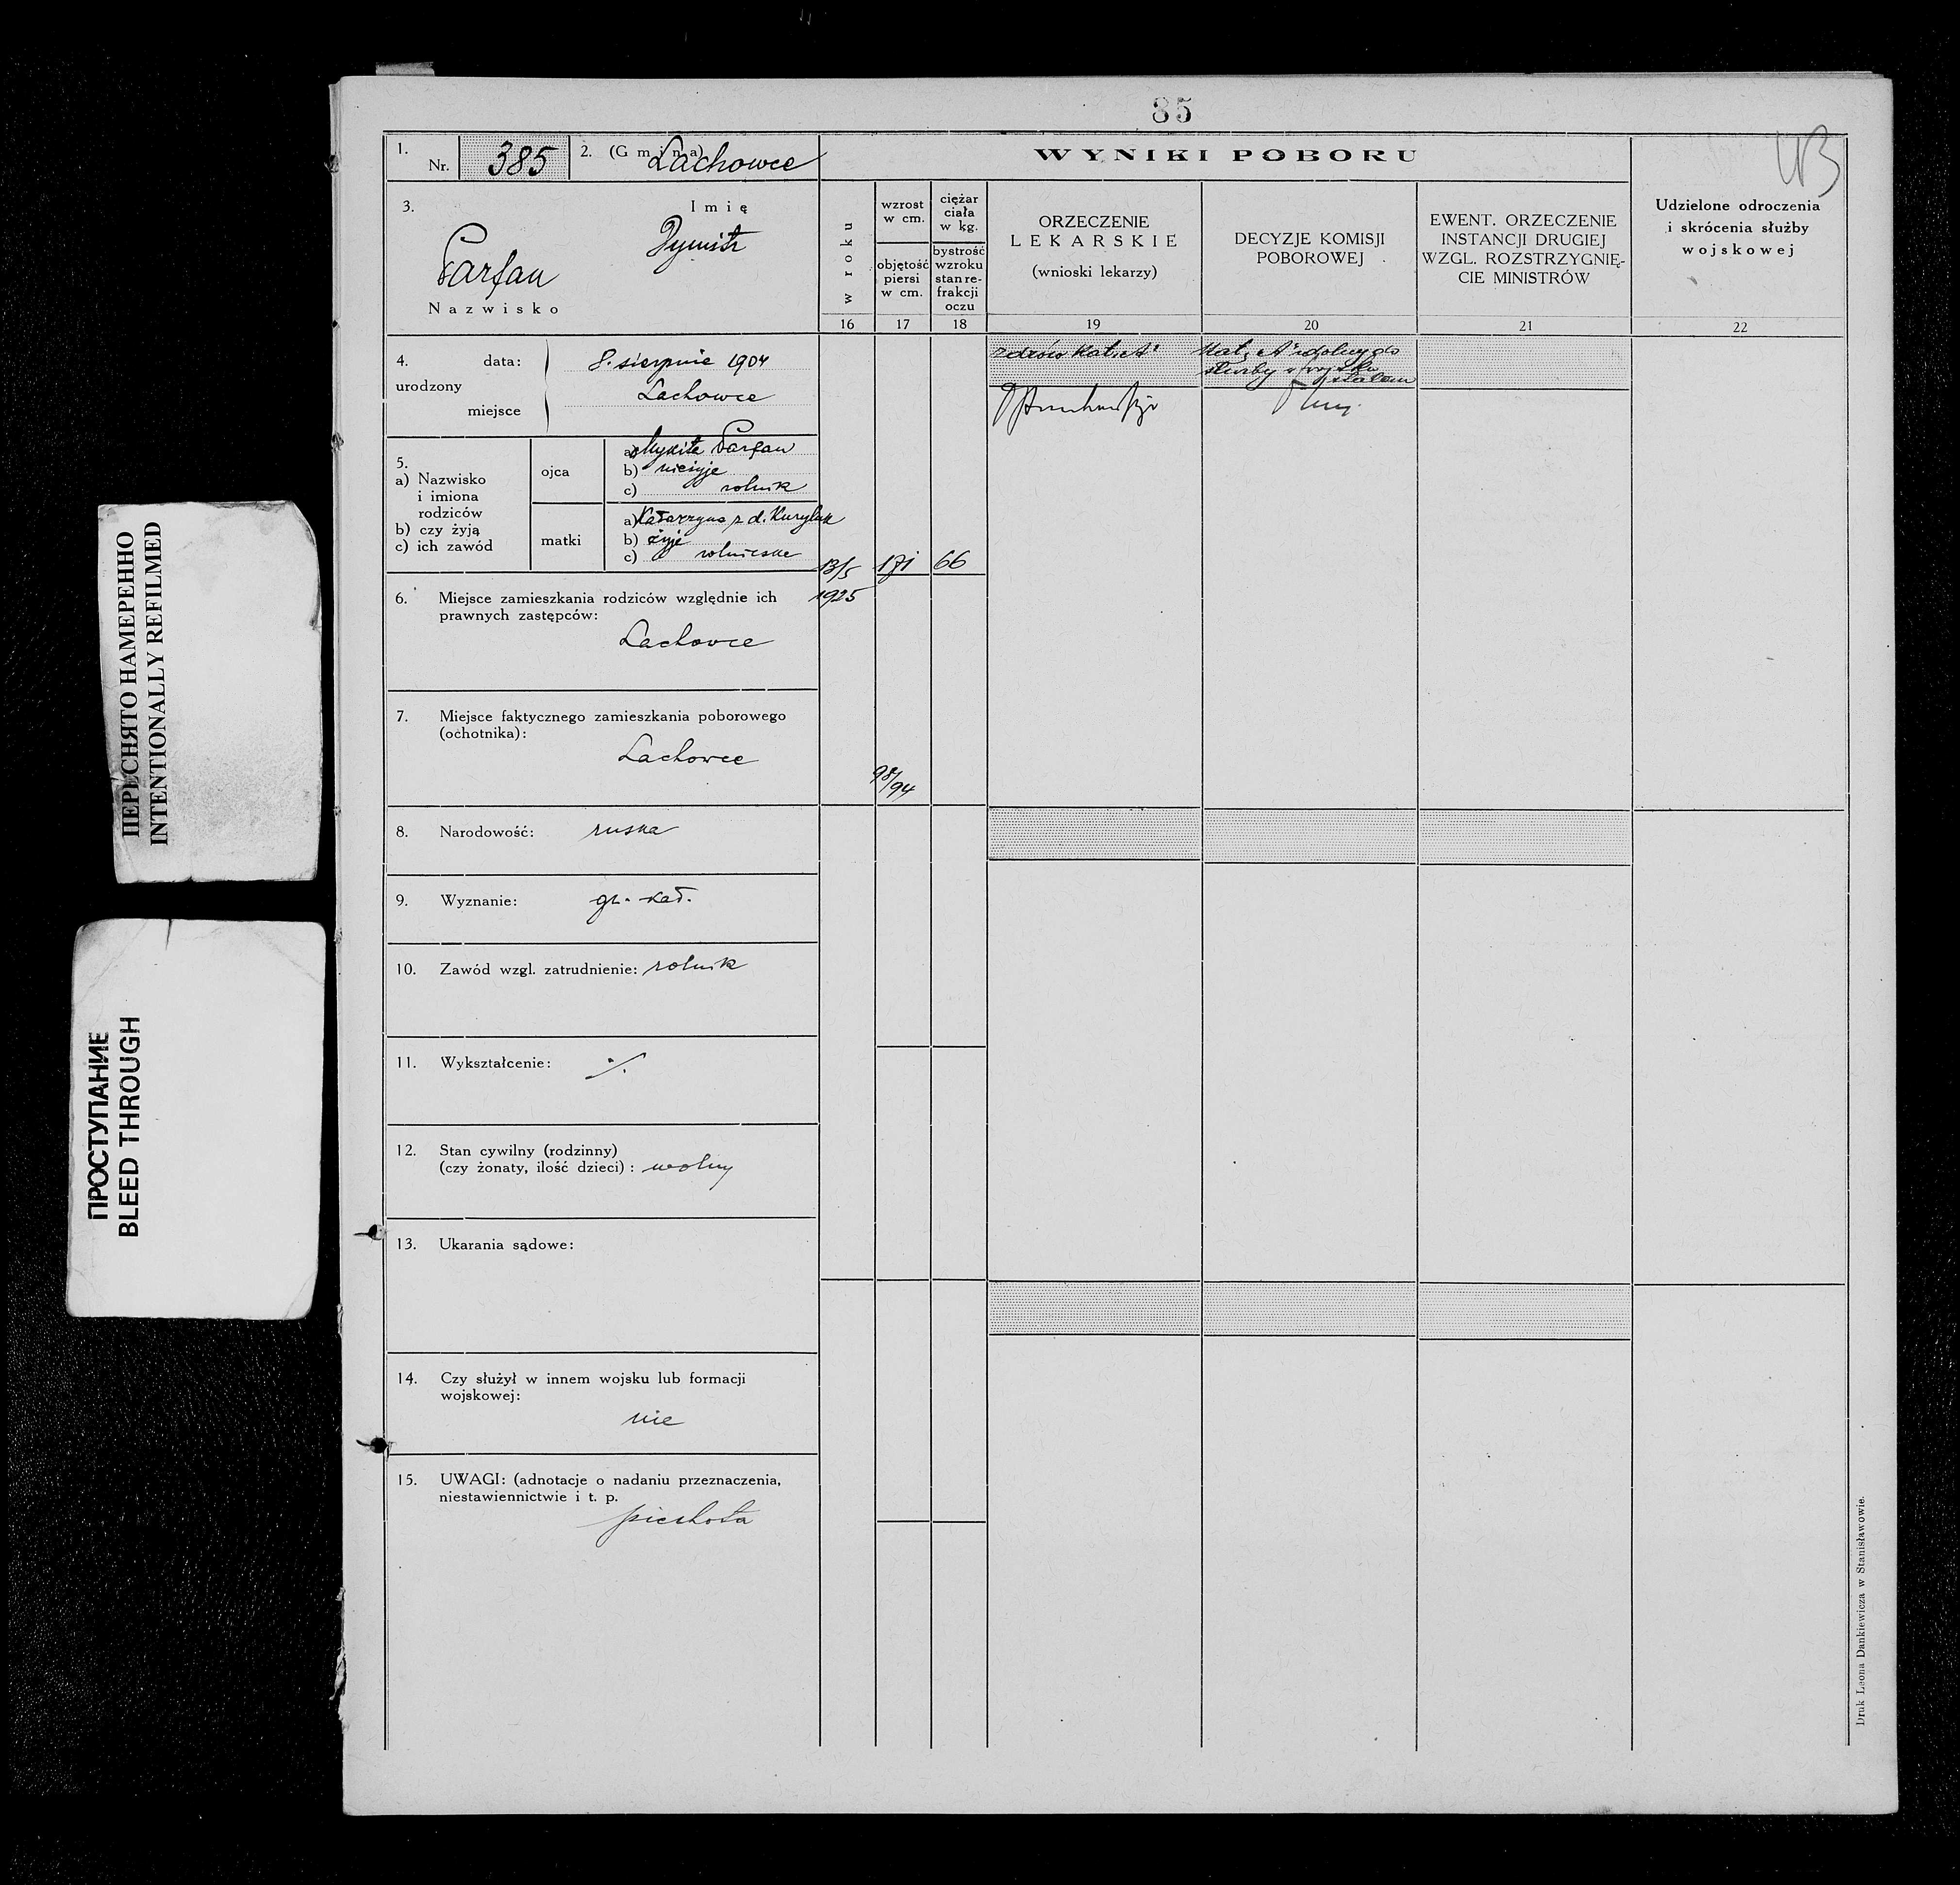 85
1. Nr. 385 2. (Gmina) Lachowce
WYNIKI POBORU
3. Imię
Dymitr
Parfan
Nazwisko
w roku
wzrost w cm.
objętość piersi w cm.
ciężar ciała w kg.
bystrość wzroku stan refrakcji oczu
ORZECZENIE
LEKARSKIE
(wnioski lekarzy)
DECYZJE KOMISJI
POBOROWEJ
EWENT. ORZECZENIE
INSTANCJI DRUGIEJ
WZGL. ROZSTRZYGNIĘ-
CIE MINISTRÓW
Udzielone odroczenia
i skrócenia służby
wojskowej
16 17 18 19 20 21 22
4. urodzony
data: 8. sierpnia 1904
miejsce Lachowce
5.
a) Nazwisko
i imiona
rodziców
b) czy żyją
c) ich zawód
ojca
a) Mykita Parfan
b) nieżyje
c) rolnik
matki
a) Katarzyna z d. Kuryluk
b) żyje
c) rolniczka
13/5
1925
171
66
98/94
zdrów Kat. A
Kat. A zdolny do
służby w wojsku
stałem
6. Miejsce zamieszkania rodziców względnie ich
prawnych zastępców:
Lachowce
7. Miejsce faktycznego zamieszkania poborowego
(ochotnika):
Lachowce
8. Narodowość: ruska
9. Wyznanie: gr. kat.
10. Zawód wzgl. zatrudnienie: rolnik
11. Wykształcenie: ·/.
12. Stan cywilny (rodzinny)
(czy żonaty, ilość dzieci) : wolny
13. Ukarania sądowe:
14. Czy służył w innem wojsku lub formacji
wojskowej:
nie
15. UWAGI: (adnotacje o nadaniu przeznaczenia,
niestawiennictwie i t. p.
piechota
Druk Leona Dankiewicza w Stanisławowie.
ПЕРЕСНЯТО НАМЕРЕННО
INTENTIONALLY REFILMED
ПРОСТУПАНИЕ
BLEED THROUGH